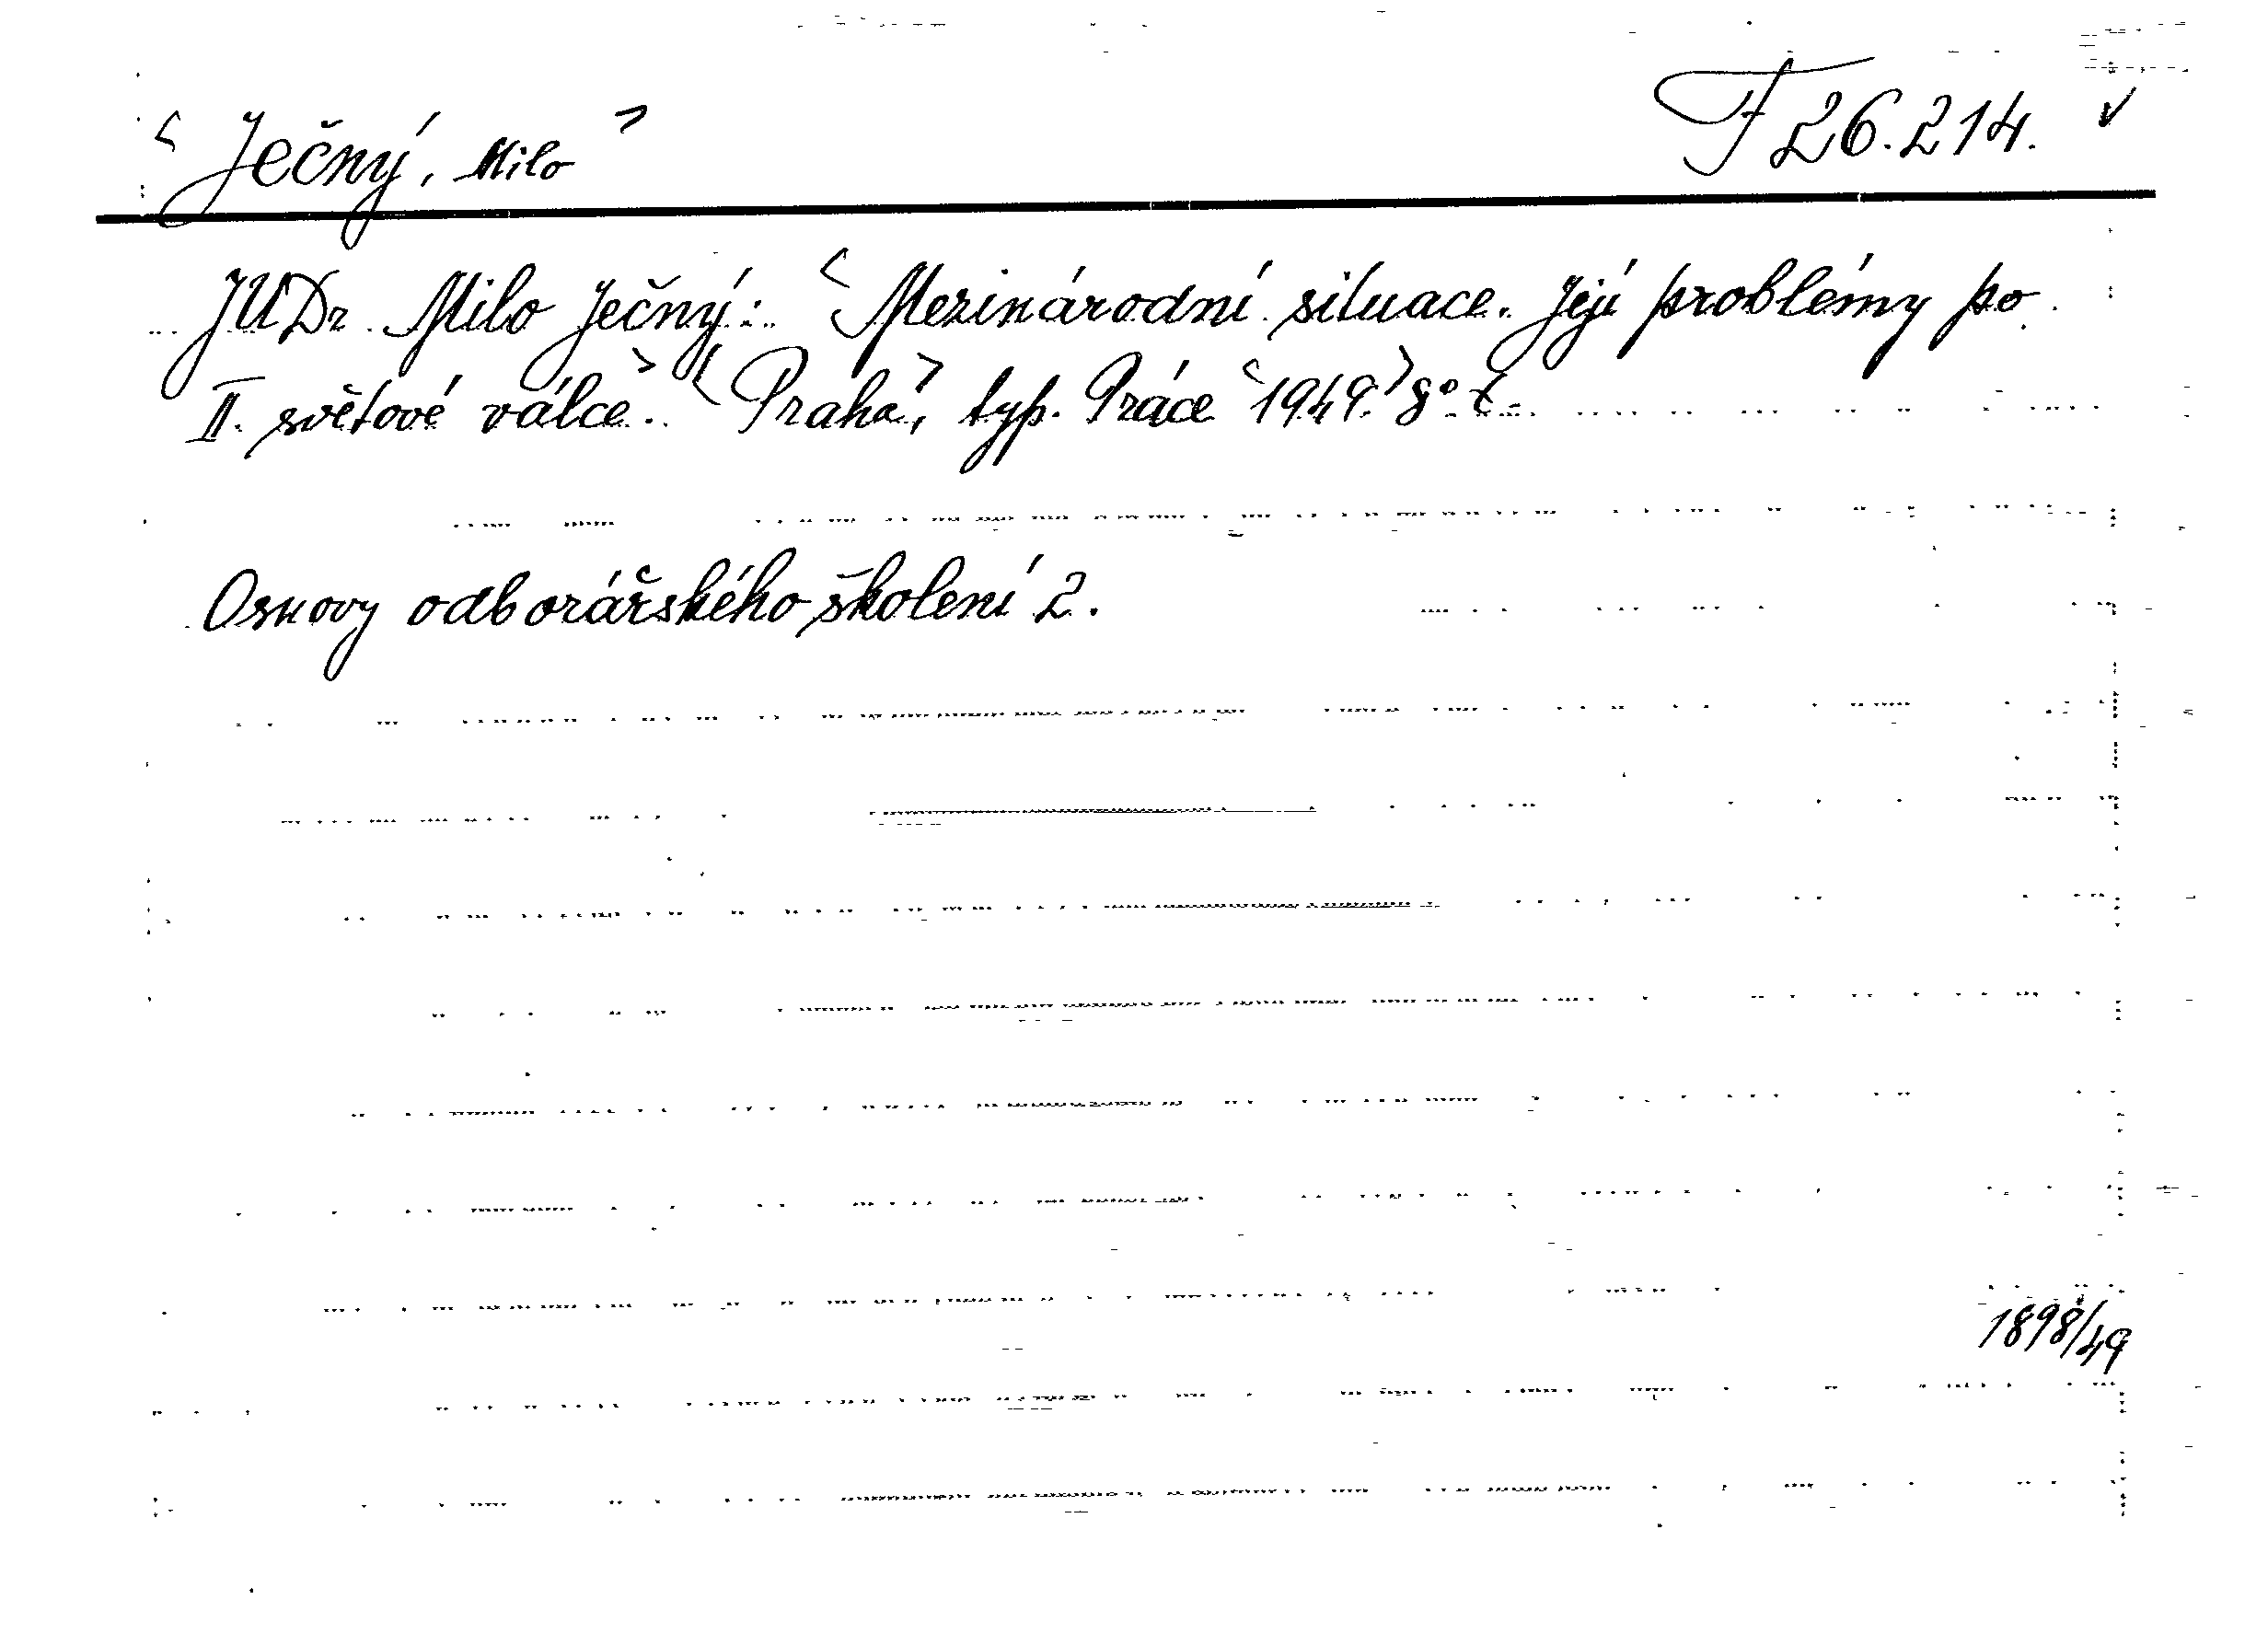 <Ječný, Milo> F 26.214. ✓
JUDr. Milo Ječný: <Mezinárodní situace. Její problémy po
II. světové válce.> <Praha>, typ. Práce <1949.> 8°
Osnovy odborářského školení 2.
1898/49